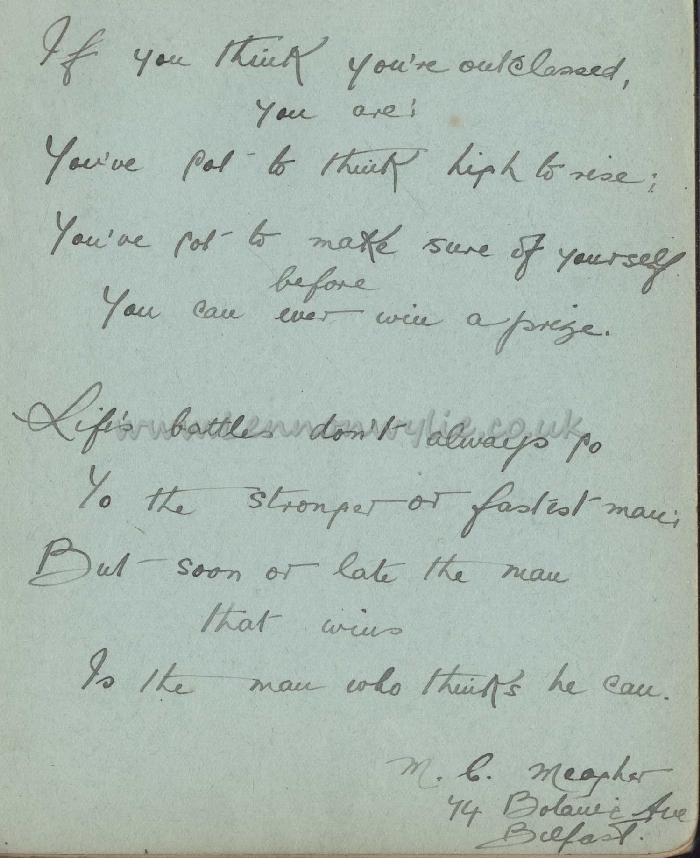 If you think you're outclassed,
you are;
You've got to think high to rise;
You've got to make sure of yourself
before
You can ever win a prize.
Life's battles don't always go
To the stronger or fastest man;
But soon or late the man
that wins
Is the man who thinks he can.
M. C. Meagher
74 Botanic Ave
Belfast.
www.lennonwylie.co.uk